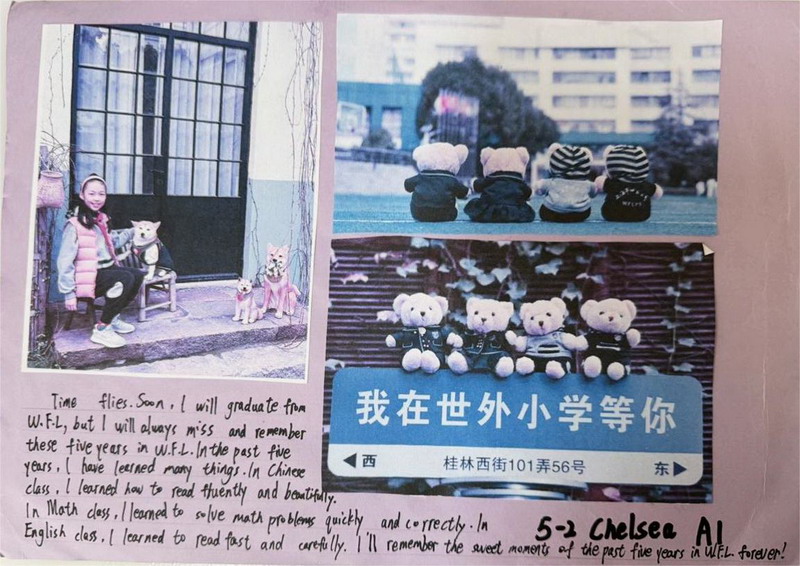 我在世外小学等你
西 桂林西街101弄56号 东
Time flies. Soon, I will graduate from
W.F.L, but I will always miss and remember
these five years in W.F.L. In the past five
years, I have learned many things. In Chinese
class, I learned how to read fluently and beautifully.
In Math class, I learned to solve math problems quickly and correctly. In
English class, I learned to read fast and carefully. I'll remember the sweet moments of the past five years in W.F.L. forever!
5-2 Chelsea A1